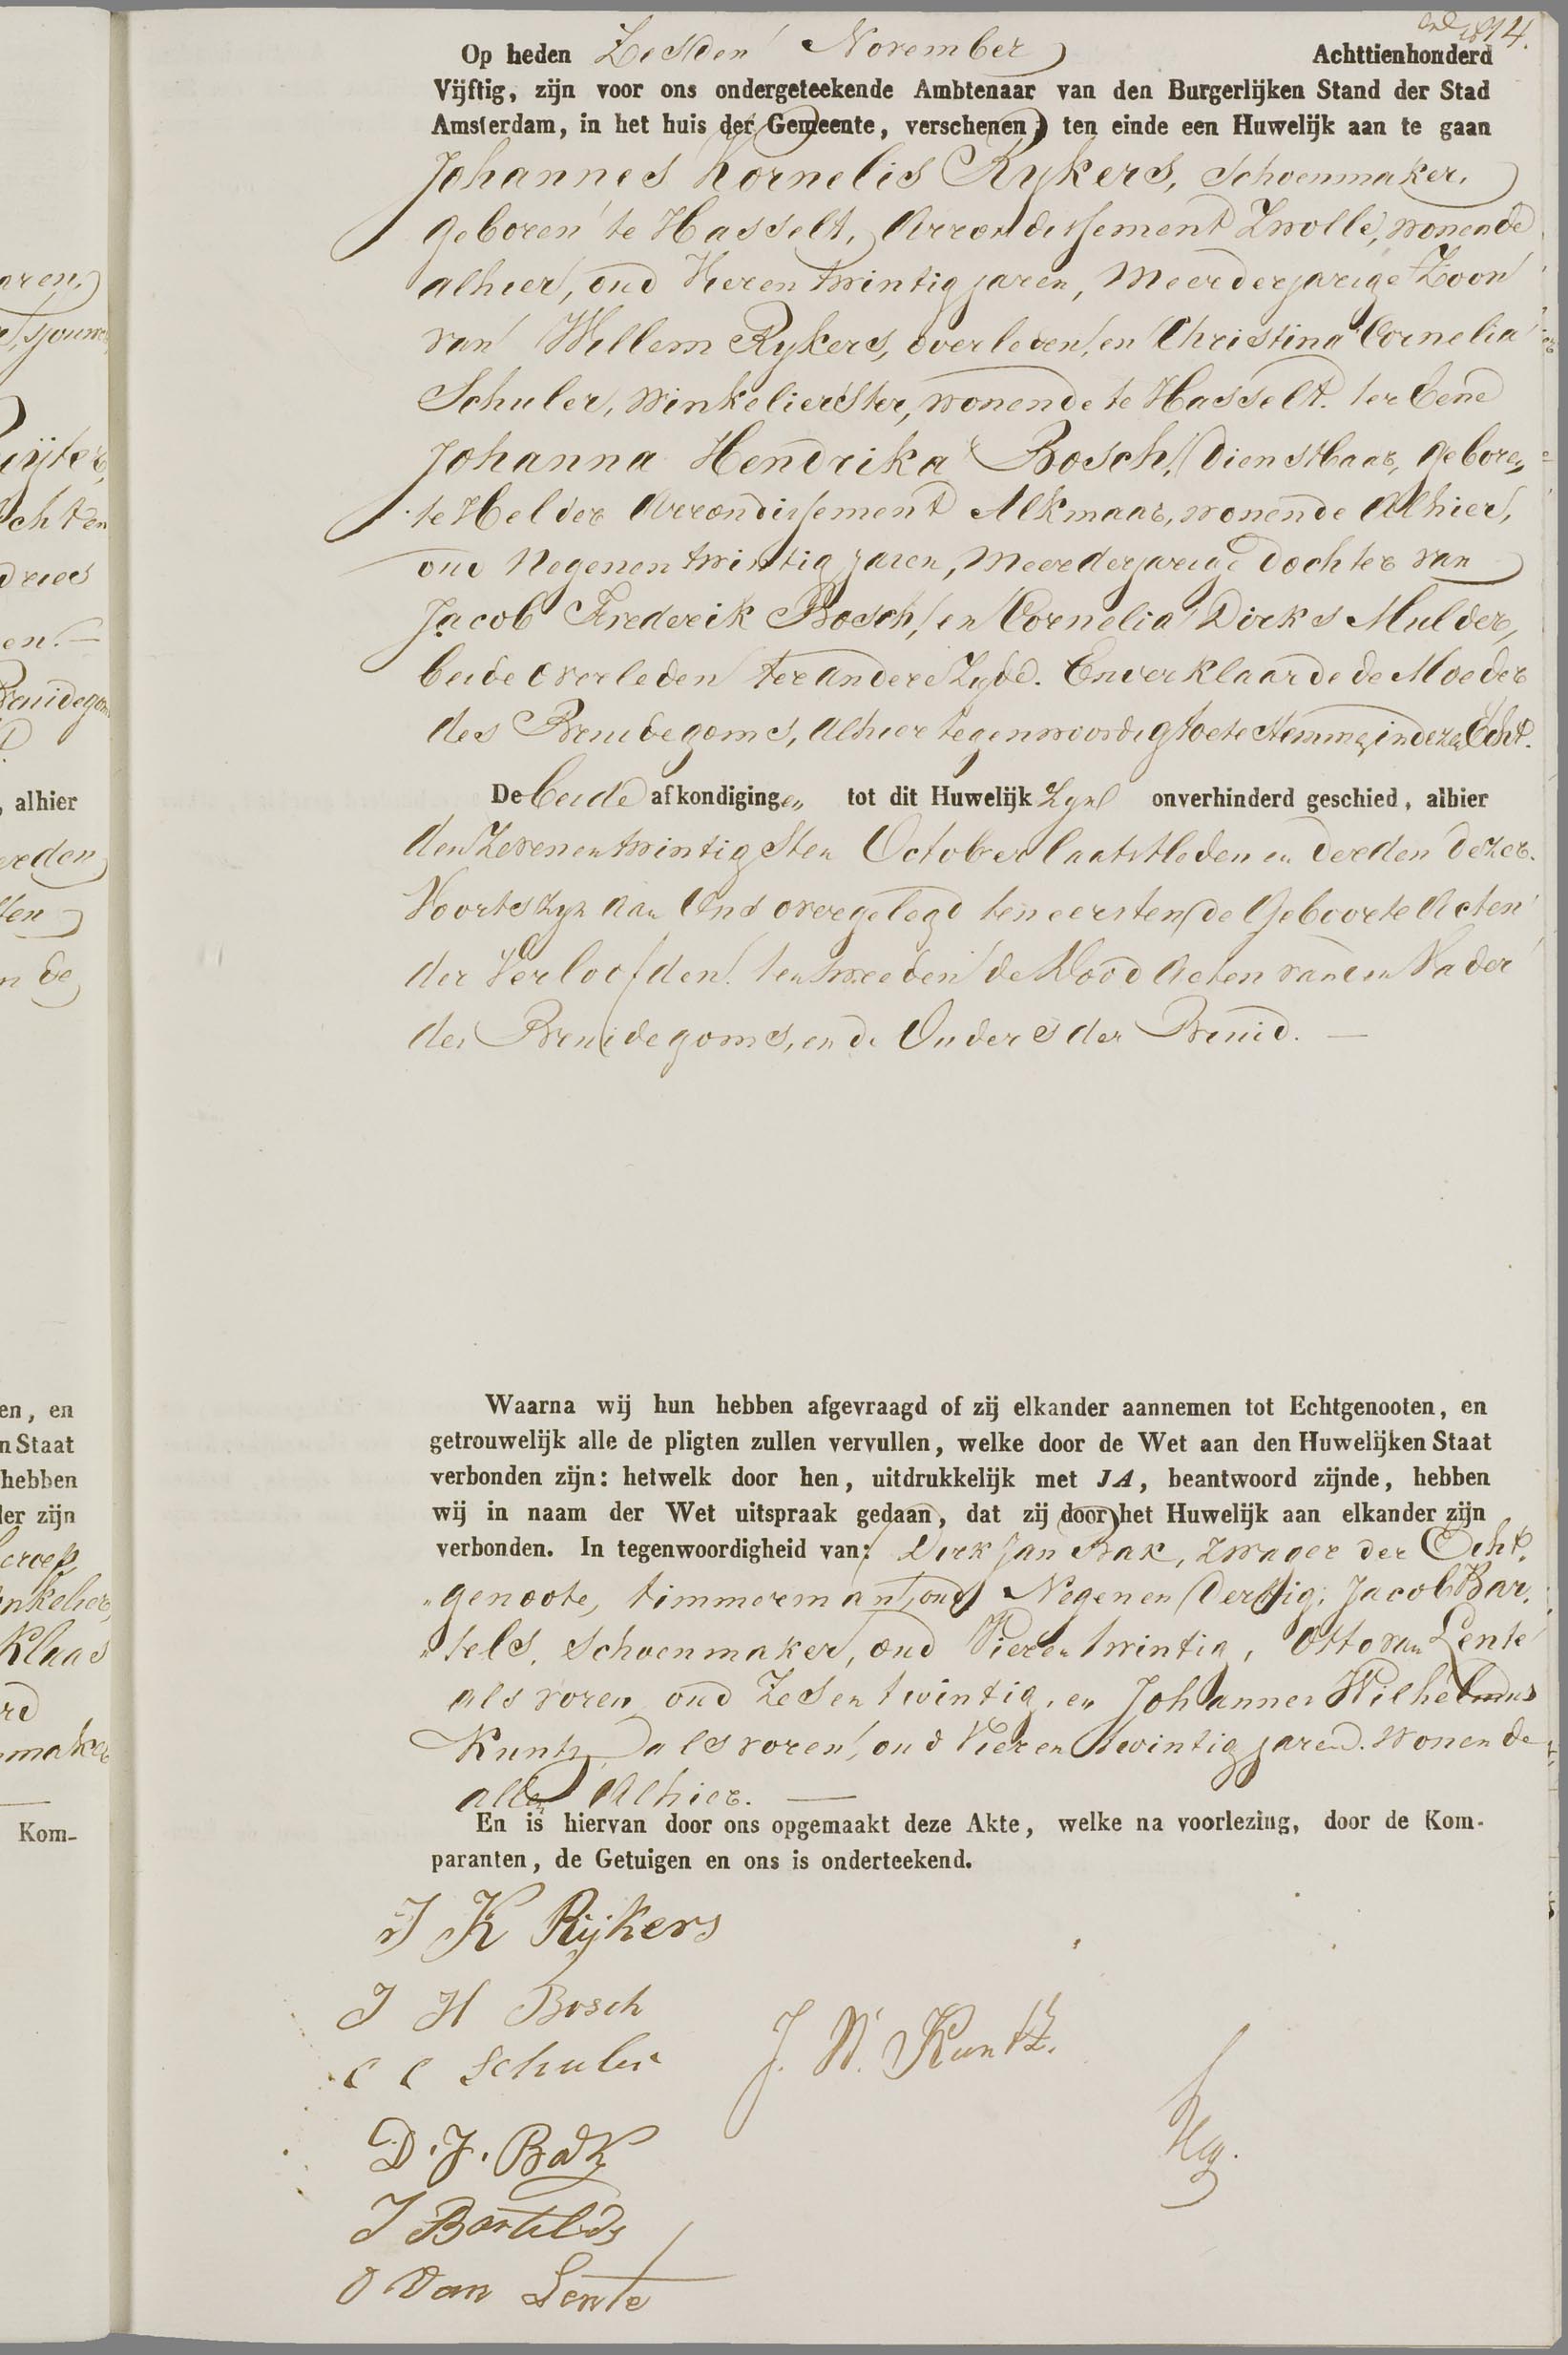 Op heden Zesden November Achttienhonderd
Vijftig, zijn voor ons ondergeteekende Ambtenaar van den Burgerlijken Stand der Stad
Amsterdam, in het huis der Gemeente, verschenen, ten einde een Huwelijk aan te gaan
Johannes Kornelis Rykers, Schoenmaker,
geboren te Hasselt, Arrondissement Zwolle, wonende
alhier, oud Vierentwintig jaren, Meerderjarige Zoon
van Willem Rykers, overleden, en Christina Cornelia
Schuler, Winkelierster, wonende te Hasselt. ter Eene
Johanna Hendrika Bosch, Dienstbaar, geboren
te Helder Arrondissement Alkmaar, wonende Alhier,
oud Negenentwintig jaren, Meerderjarige Dochter van
Jacob Frederik Bosch, en Cornelia Dirks Mulder,
beide overleden ter andere Zyde. En verklaarde de Moeder
des Bruidegoms, Alhier tegenwoordig toetestemmen in dezen Echt.
De beide afkondigingen tot dit Huwelijk Zyn onverhinderd geschied, alhier
den Zevenentwintigsten October laatstleden en derden dezer.
Voorts zyn aan Ons overgelegd ten eersten de Geboorte Acten
der Verloofden. ten tweeden de Dood Acten van den Vader
des Bruidegoms, en de Ouders der Bruid. —
Waarna wij hun hebben afgevraagd of zij elkander aannemen tot Echtgenooten, en
getrouwelijk alle de pligten zullen vervullen, welke door de Wet aan den Huwelijken Staat
verbonden zijn: hetwelk door hen, uitdrukkelijk met JA, beantwoord zijnde, hebben
wij in naam der Wet uitspraak gedaan, dat zij door het Huwelijk aan elkander zijn
verbonden. In tegenwoordigheid van: Dirk Jan Bak, Zwager der Echt,
"genoote, timmerman, oud Negenen Dertig, Jacob Bar,
"tels, Schoenmaker, oud Vierentwintig, Otto van Lente
als voren oud Zesentwintig, en Johannes Wilhelmus
Kuntz, als voren, oud Vierentwintig jaren. Wonende
allen Alhier. —
En is hiervan door ons opgemaakt deze Akte, welke na voorlezing, door de Kom-
paranten, de Getuigen en ons is onderteekend.
J K Rijkers
J H Bosch
C C Schuler
J. W. Kuntz.
D. J. Bak
J Bartelds
O van Lente
aren,
Achten
dries
en. —
Bruidegom
, alhier
eeden
en, en
n Staat
hebben
der zijn
beroep
Klaas
Kom-